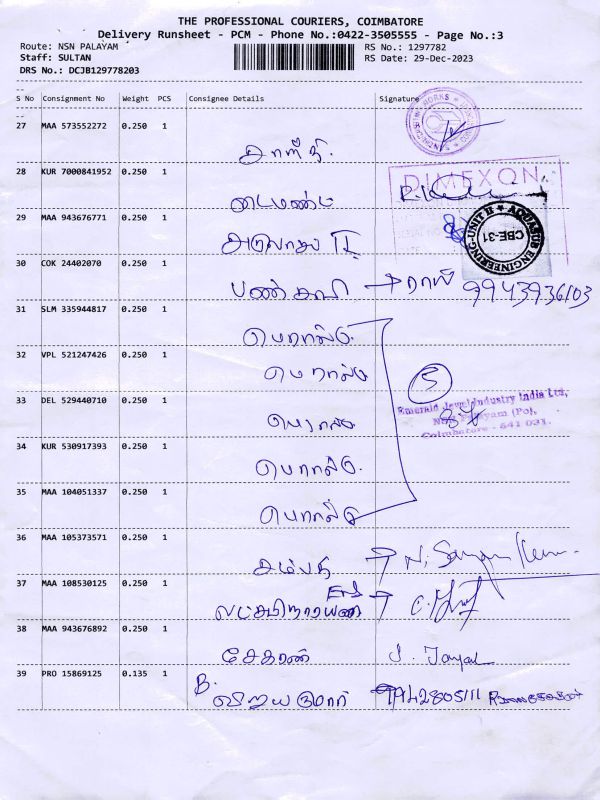 THE PROFESSIONAL COURIERS, COIMBATORE
Delivery Runsheet - PCM - Phone No.:0422-3505555 - Page No.:3
Route: NSN PALAYAM
RS No.: 1297782
Staff: SULTAN
RS Date: 29-Dec-2023
DRS No.: DCJB129778203
S No Consignment No Weight PCS Consignee Details Signature
27 MAA 573552272 0.250 1
28 KUR 7000841952 0.250 1
DIMEXON
டைமண்ட்
29 MAA 943676771 0.250 1
AQUASUB ENGINEERING-UNIT II
CBE-31
30 COK 24402070 0.250 1
9943936103
31 SLM 335944817 0.250 1
எமரால்டு
32 VPL 521247426 0.250 1
எமரால்டு
5
33 DEL 529440710 0.250 1
Emerald Jewel Industry India Ltd,
எமரால்டு
Coimbatore - 641 031.
34 KUR 530917393 0.250 1
எமரால்டு
35 MAA 104051337 0.250 1
எமரால்டு
36 MAA 105373571 0.250 1
சம்பத்
37 MAA 108530125 0.250 1
லட்சுமிநாராயண
38 MAA 943676892 0.250 1
சேகரன்
39 PRO 15869125 0.135 1
B.
விஜயகுமார் 9942805111